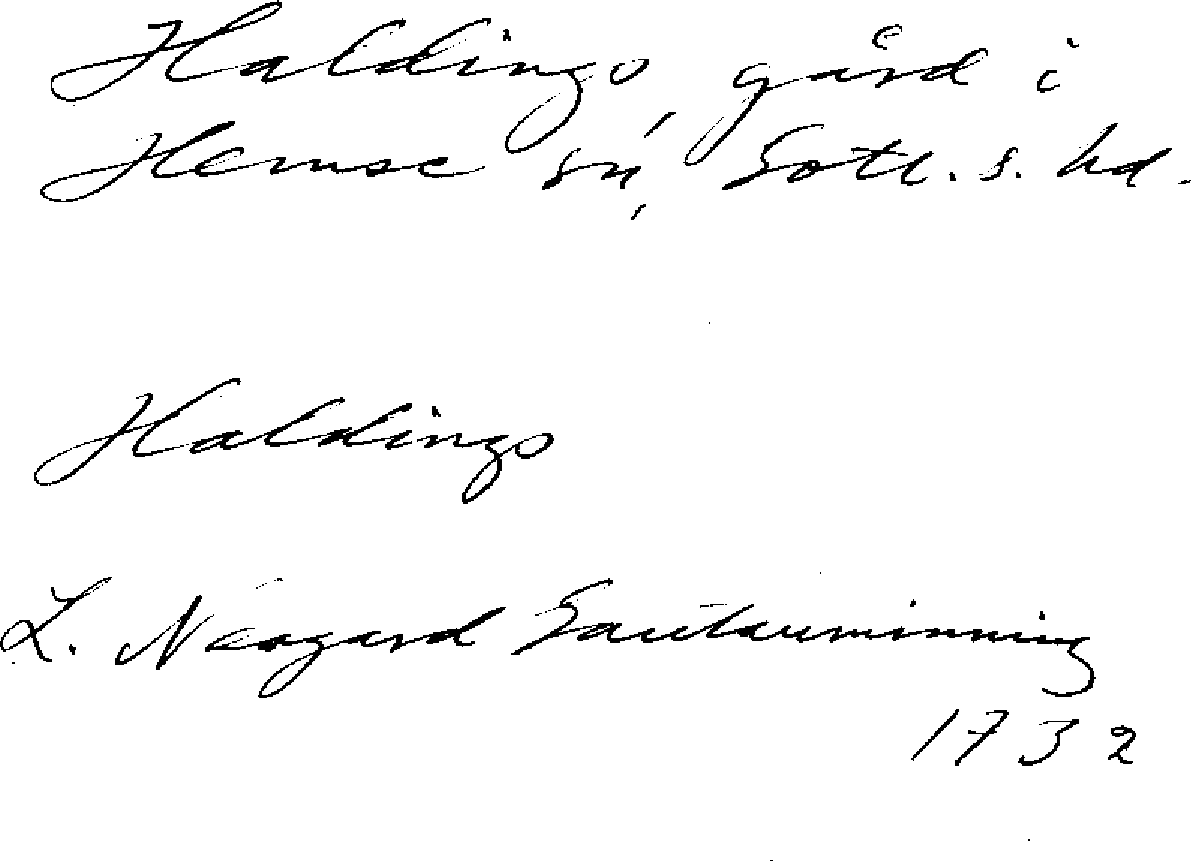 Haldings, gård i
Hemse sn, Gotl. s. hd.
Haldings
L. Neogard Gautauminning
1732